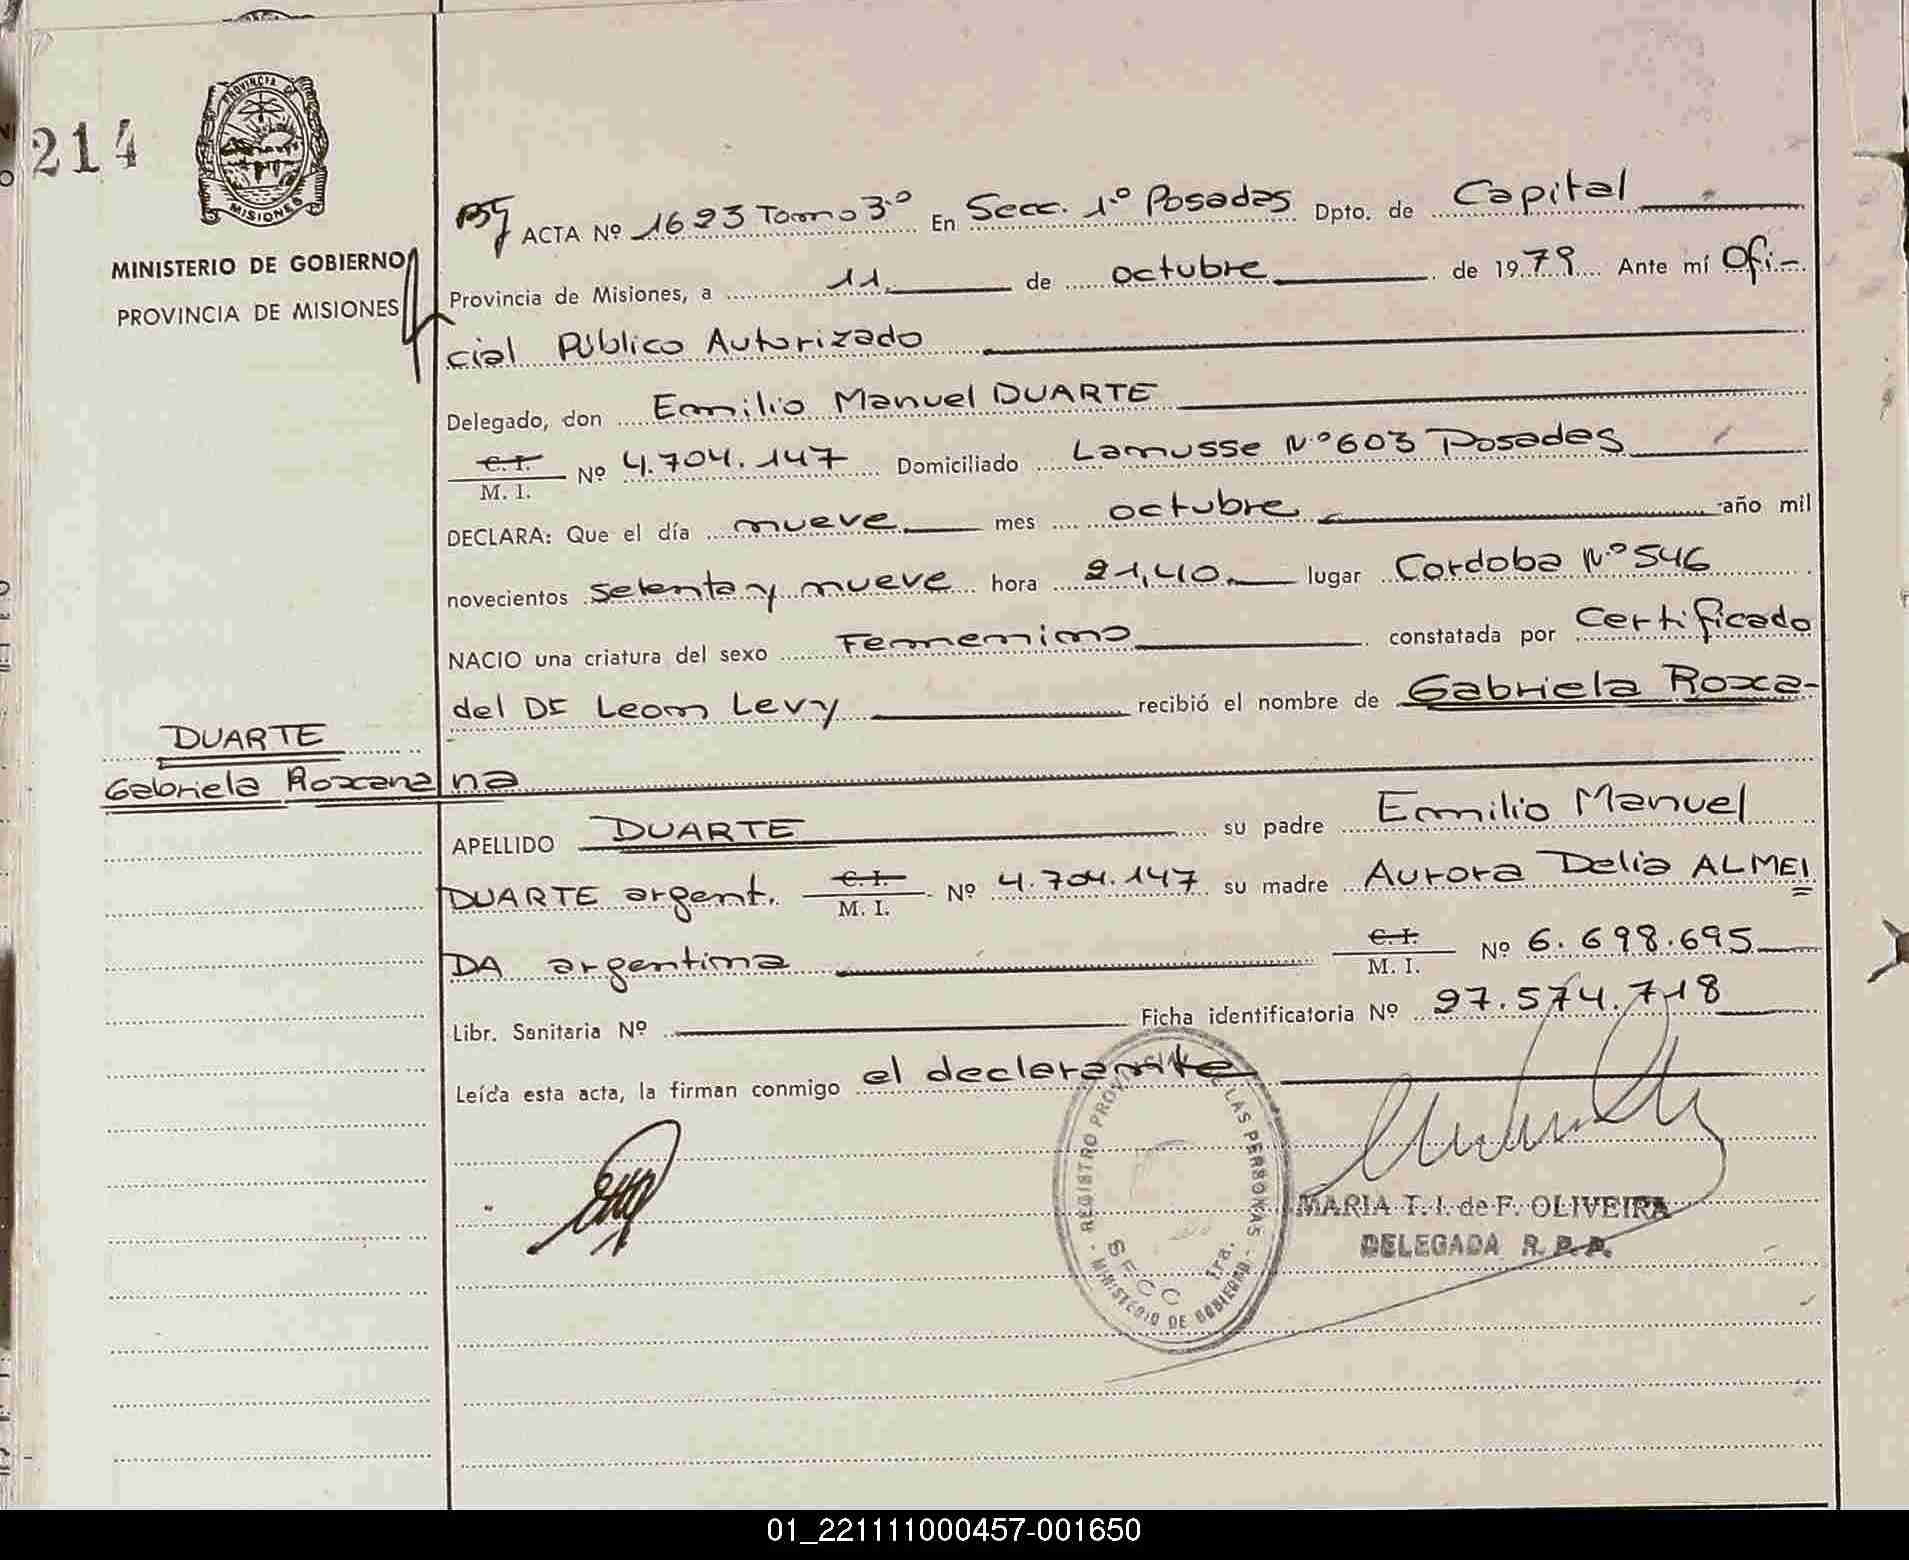 214
PROVINCIA DE
MISIONES
MINISTERIO DE GOBIERNO
PROVINCIA DE MISIONES
ACTA Nº 1623 Tomo 3º En Secc. 1º Posadas Dpto. de Capital
Provincia de Misiones, a 11 de octubre de 1979 Ante mí Ofi-
cial Público Autorizado
Delegado, don Emilio Manuel DUARTE
C.I. M. I. Nº 4.704.147 Domiciliado Lamusse Nº 603 Posadas
DECLARA: Que el día nueve mes octubre año mil
novecientos setenta y nueve hora 21,40 lugar Cordoba Nº 546
NACIO una criatura del sexo Femenino constatada por Certificado
del Dr Leon Levy recibió el nombre de Gabriela Roxa-
na
DUARTE
Gabriela Roxana
APELLIDO DUARTE su padre Emilio Manuel
DUARTE argent. C.I. M. I. Nº 4.704.147 su madre Aurora Delia ALMEI
DA argentina C.I. M. I. Nº 6.698.695
Libr. Sanitaria Nº Ficha identificatoria Nº 27.574.718
Leída esta acta, la firman conmigo el declarante
REGISTRO PROVINCIAL DE LAS PERSONAS
SECC 1ra.
MINISTERIO DE GOBIERNO
MARIA T. I. de F. OLIVEIRA
DELEGADA R. P. P.
01_221111000457-001650